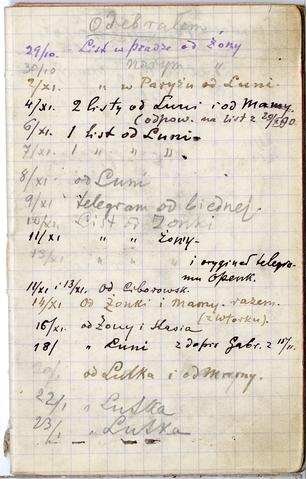 Odebrałem
29/10. List w pradze od Żony
30/10 "
2/XI. " w Paryżu od Luni
4/XI. 2 listy od Luni i od Mamy
(odpow. na list z 29/X 90.
6/XI. 1 list od Luni.
7/XI 1 " " "
8/XI od Luni
9/XI telegram od biednej.
10/XI List od Żonki
11/XI " " Żony.
13/XI " " i oryginał telegra-
mu
11/XI i 13/XI. od Ciborowsk.
14/XI Od Żonki i Mamy. razem.
(z Wtorku).
16/XI. od Żony i Stasia
18/ " Luni z dopis Gabr. z 15/11.
20/ od Lutka i od Mamy.
22/ " Lutka
23/ " Lutka